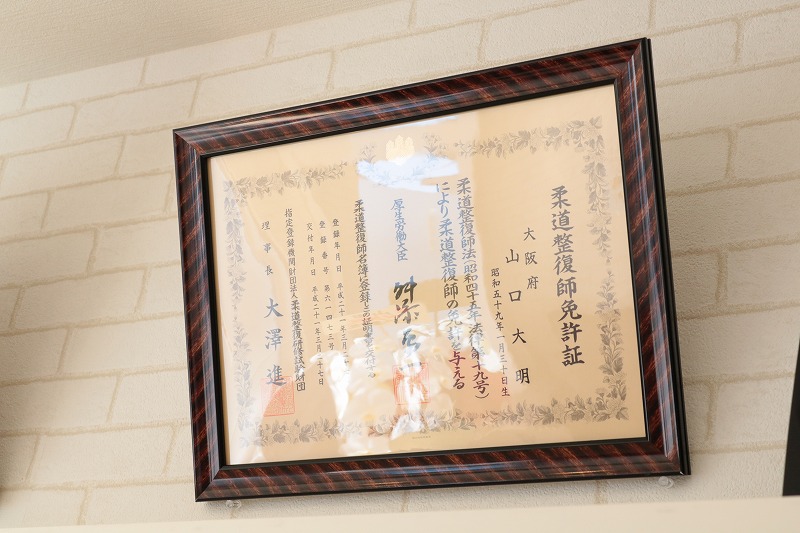 柔道整復師免許証
大阪府
山口大明
昭和五十九年一月三十日生
柔道整復師法(昭和四十五年法律第十九号)
により柔道整復師の免許を与える
厚生労働大臣
柔道整復師名簿に登録し
登録年月日 平成二十一年三月二十
登録番号 第六一四七三号
交付年月日 平成二十一年三月二十七日
指定登録機関財団法人柔道整復研修試験財団
理事長 大澤進